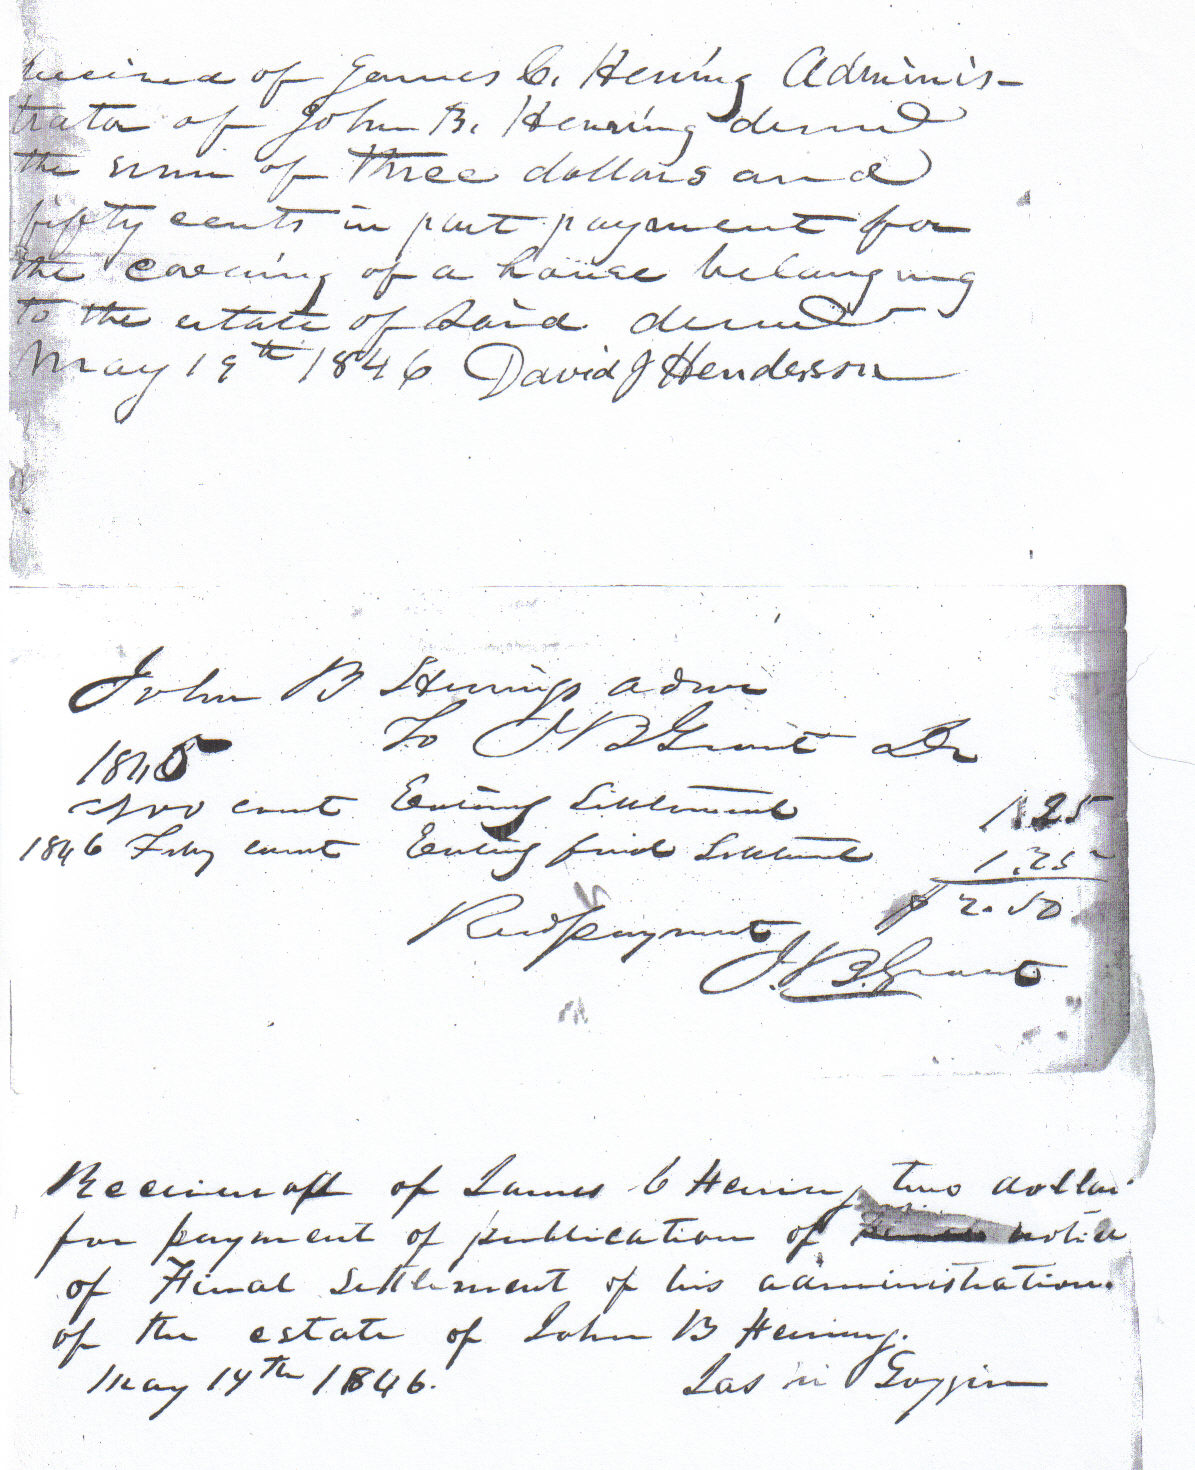 Received of James C. Hening Adminis-
trator of John B. Henring decd
the sum of three dollars and
fifty cents in part payment for
the covering of a house belonging
to the estate of Said decd
May 19th 1846 David J Henderson
John B Herrings admr
1845 To J B Grant Dr
Nov court Entering Settlement 1.25
1846 Feby court Entering final Settlement 1.25
$2.50
Recd payment
J. B. Grant
Received of of James C Hening two dollar
for payment of publication of notice
of Final Settlement of his administration
of the estate of John B Hening.
May 14th 1846. Jas Goggin